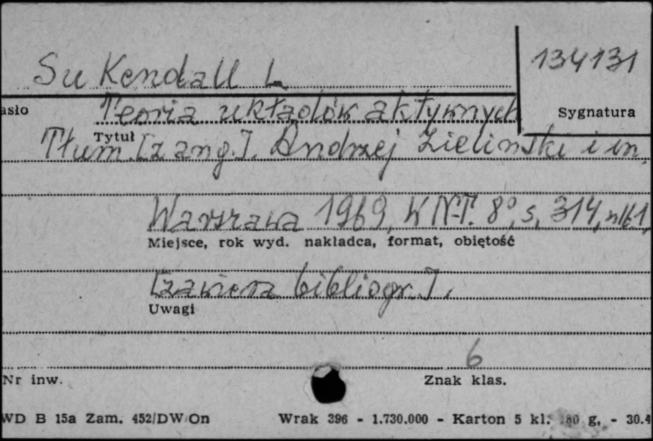 Su Kendall L
134131
asło
Teoria układów aktywnych
Sygnatura
Tytuł
Tłum. [z ang.]. Andrzej Zieliński i in.
Warszawa 1969, WN-T. 8°, s. 314, nlb 1,
Miejsce, rok wyd. nakładca, format, objętość
[zawiera bibliogr.].
Uwagi
6
Nr inw.
Znak klas.
WD B 15a Zam. 452/DW/On Wrak 396 - 1.730.000 - Karton 5 kl. 180 g. - 30.4